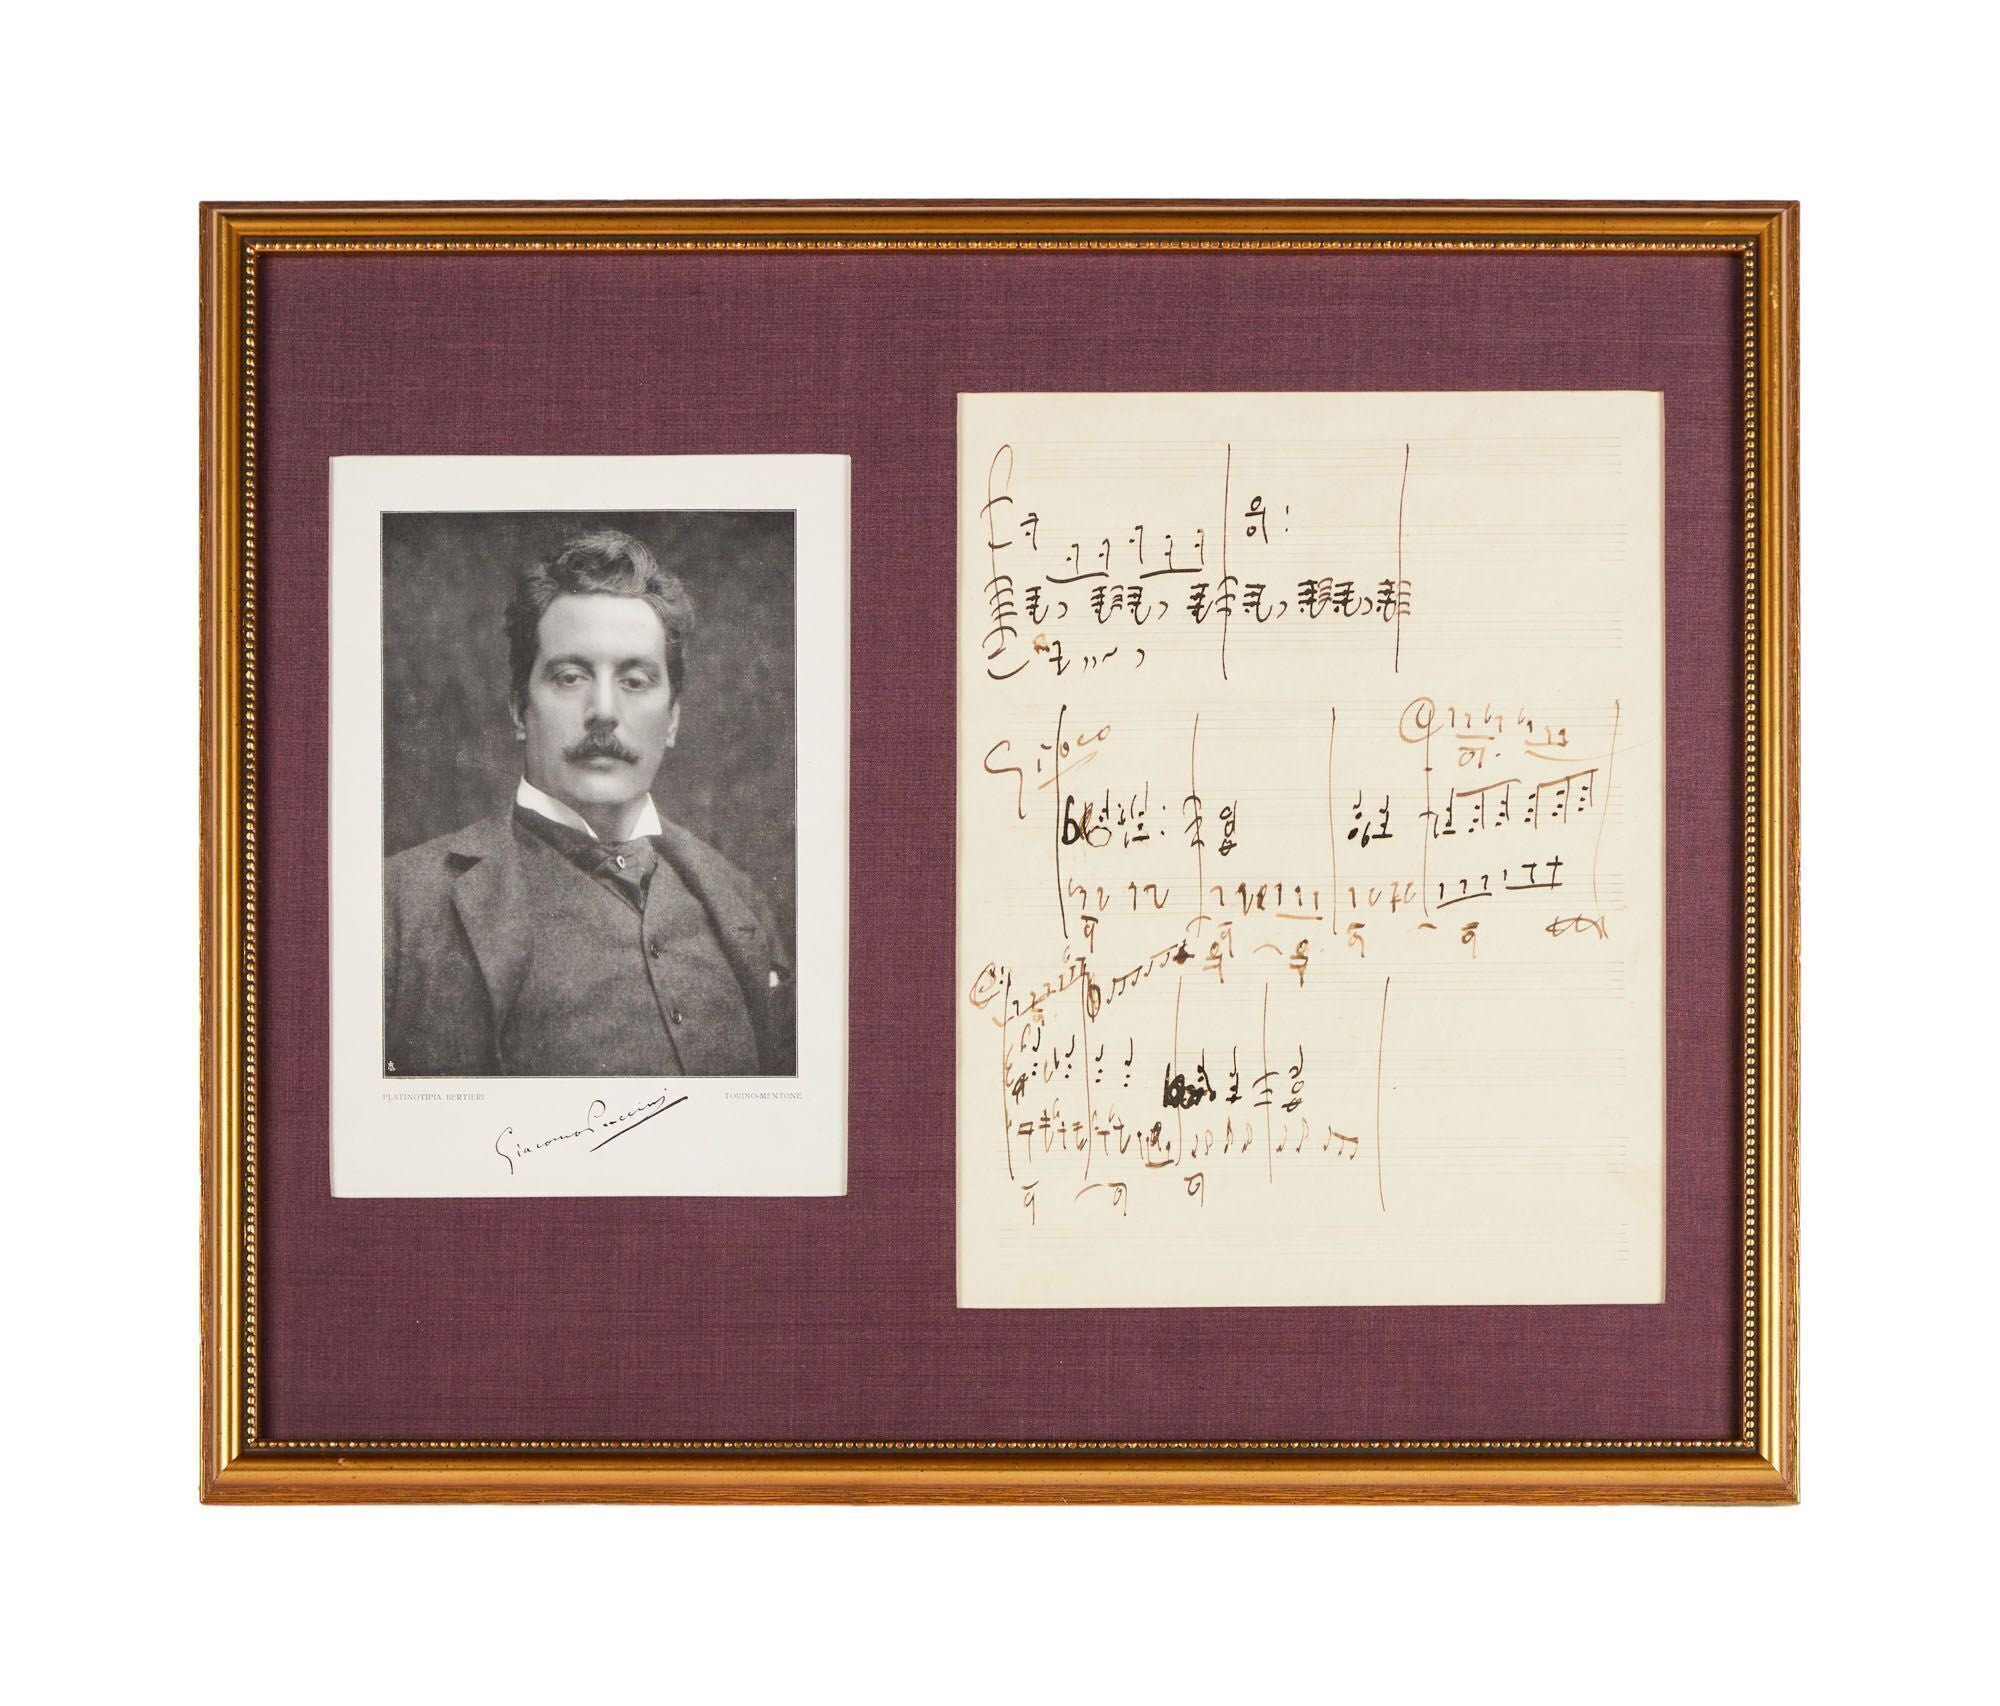 PLATINOTIPIA BERTIERI
TORINO-MENTONE
Giacomo Puccini
Gioco